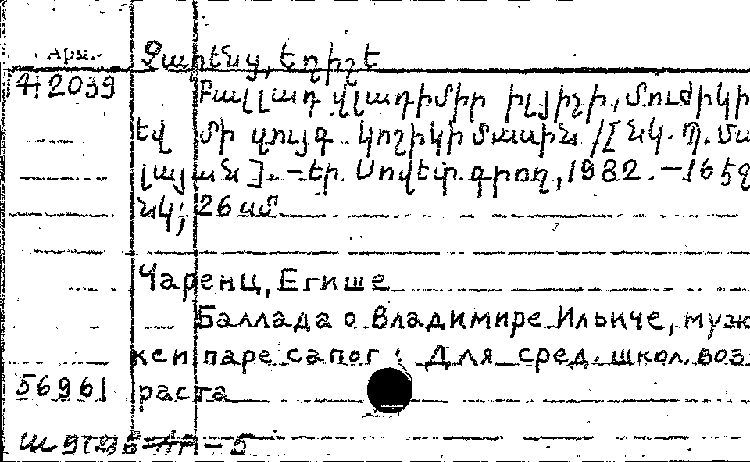 Арм. Չարենց, Եղիշե
4+2039 Բալլադ Վլադիմիր Իլյիչի, մուժիկի
եվ մի զույգ կոշիկի մասին /[նկ. Պ. Մա
լայան]. – Եր. Սովետ. գրող, 1982. – 16 էջ
նկ; 26 սմ
Чаренц, Егише
Баллада о Владимире Ильиче, муж
ке и паре сапог: Для сред. школ. воз
56961 раста